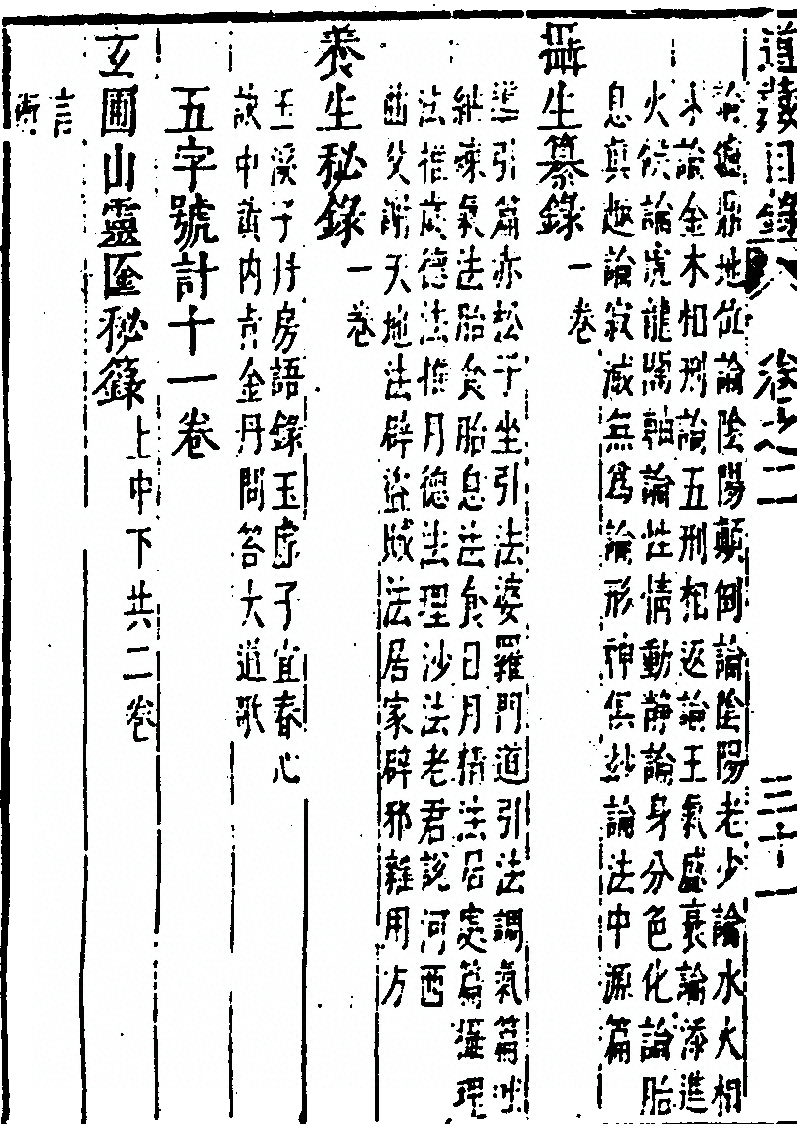 道藏目錄 卷之二 三十一
論鼎地位論陰陽顛倒論陰陽老少論水火相
論金木相刑論五刑相返論王氣盛衰論添進
火候論虎龍關軸論性情動靜論身分色化論胎
息真趣論寂滅無為論形神俱妙論法中源篇
攝生纂錄
一卷
導引篇赤松子坐引法婆羅門道引法調氣篇
練氣法胎食胎息法食日月精法居處篇攝理
法推歲德法推月德法理沙法老君說河西
父謝天地法辟盜賊法居家辟邪雜用方
養生秘錄
一卷
玉溪子丹房語錄玉虛子宜春心
訣中黃內旨金丹問答大道歌
五字號計十一卷
玄圃山靈匧秘籙
上中下共二卷
言